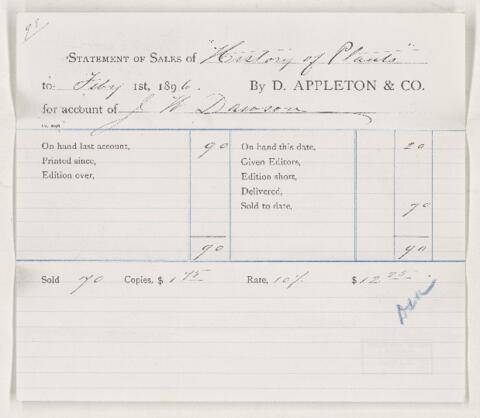 98
STATEMENT OF SALES OF "History of Plants"
to Feby 1st, 1896. BY D. APPLETON & CO.
for account of J W Dawson
On hand last account, 90 On hand this date, 20
Printed since, Given Editors,
Edition over, Edition short,
Delivered,
Sold to date, 70
90 90
Sold 70 Copies, $ 1 75 Rate, 10% $ 12 25.